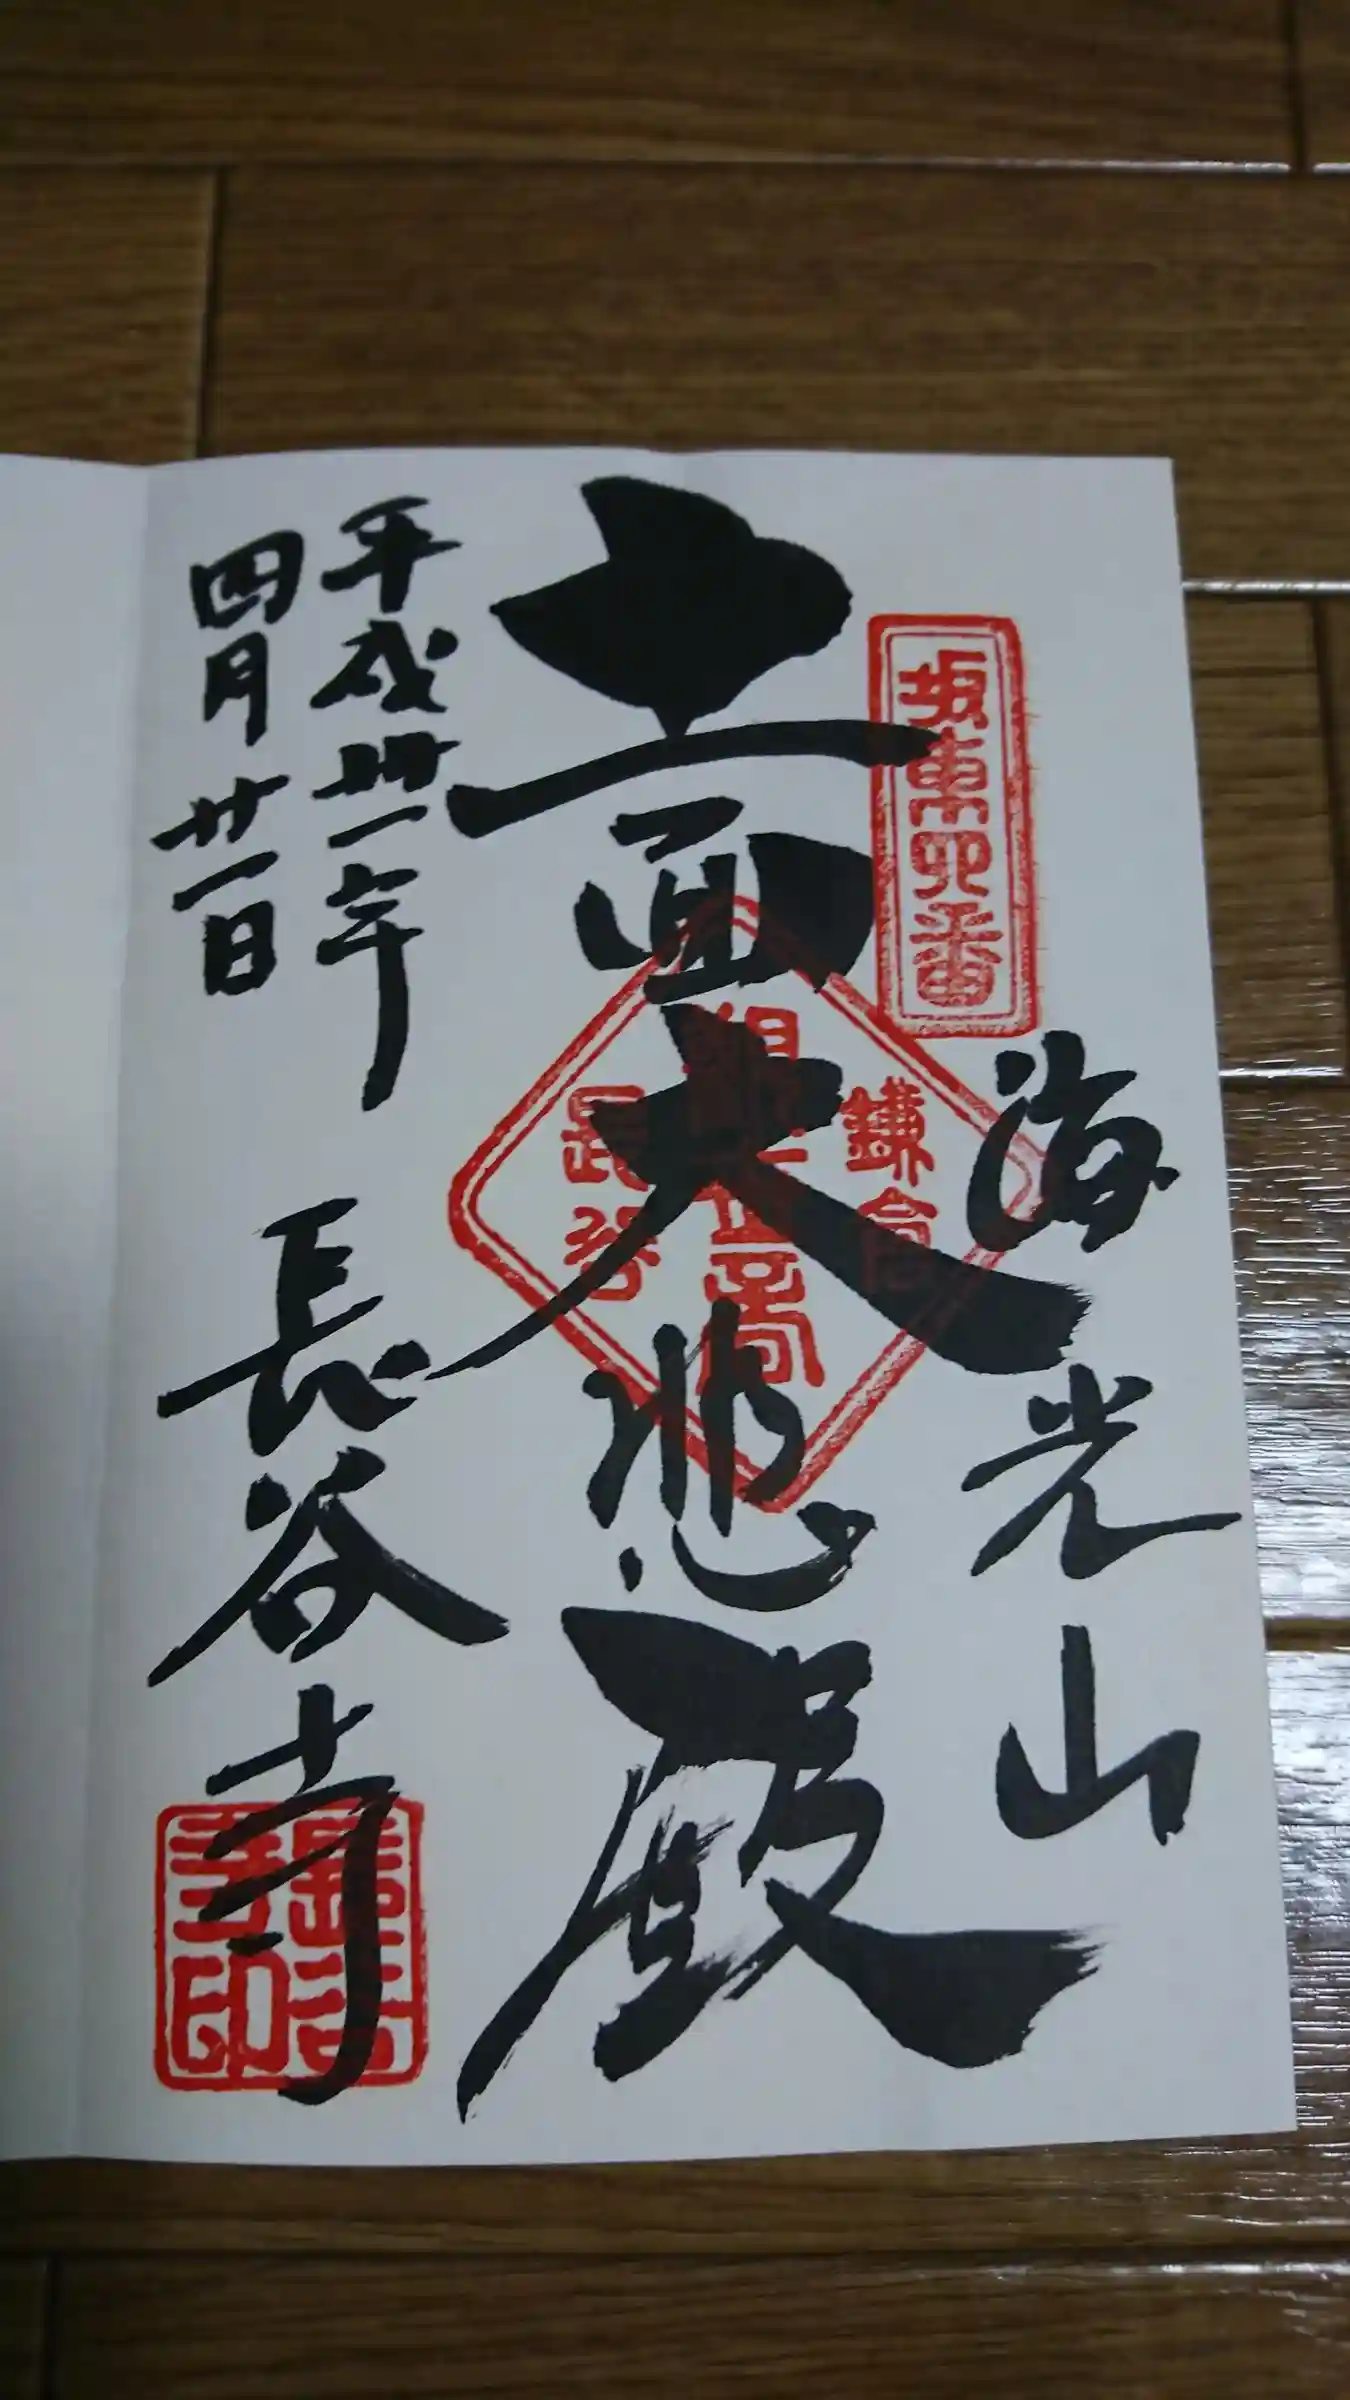 坂東四番
海光山
十一面大悲殿
鎌倉
観世音
長谷
平成卅一年
四月廿一日
長谷寺
長谷寺印